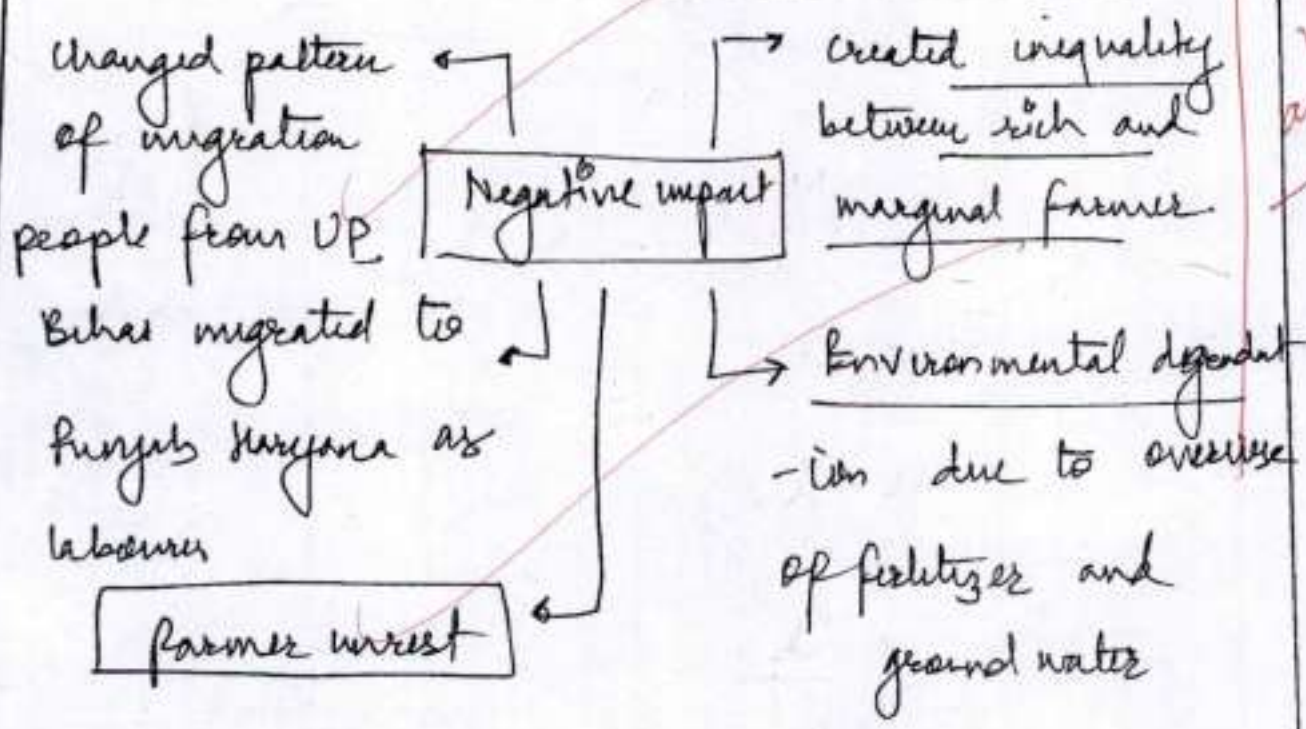 Negative impact
Changed pattern
of migration
people from UP
Bihar migrated to
Punjab Haryana as
labourer
created inequality
between rich and
marginal farmer.
Environmental degradat
-ion due to overuse
of fertilizer and
ground water
farmer unrest